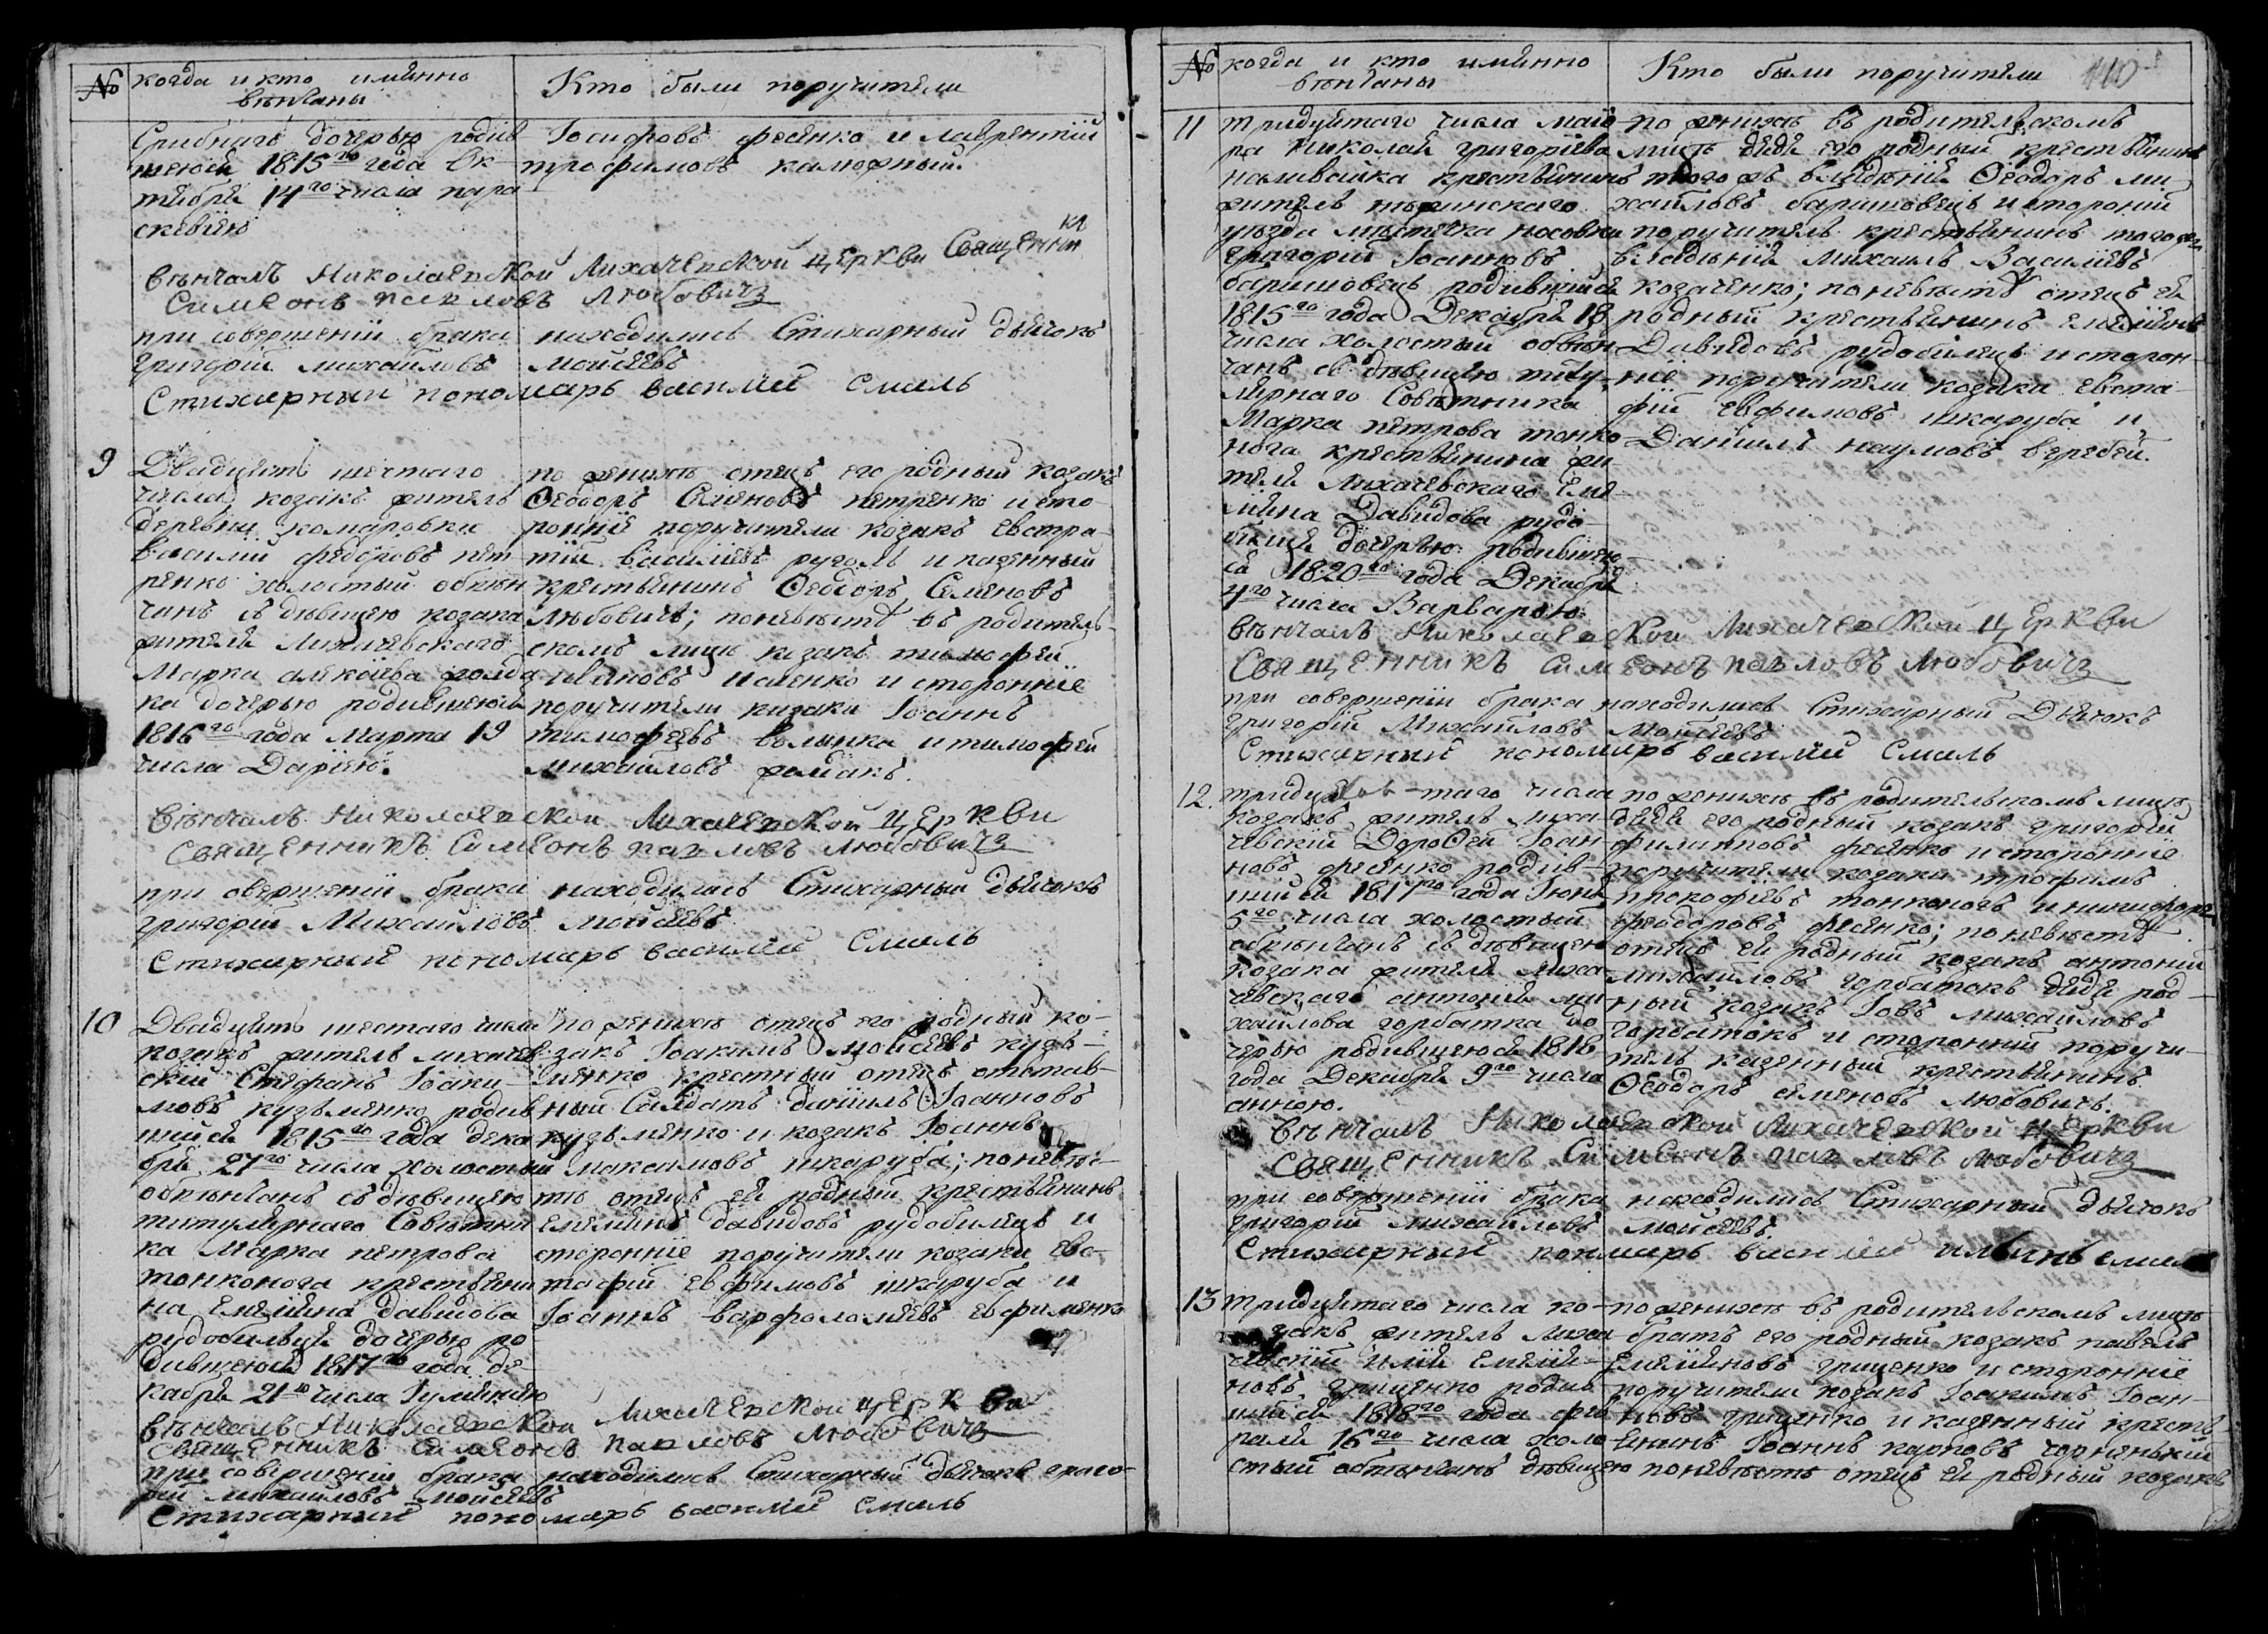 № когда и кто имянно
вѣнчаны
Кто были поручители
Срибнаго дочерью родив
шеюся 1815го года Ок
тября 14го числа пара
скевіею
Іосифовъ фесенко и лаврентій
трофимовъ каморный.
вѣнчалъ Николаевской Лихачевской церкви Священни
къ
Симеонъ павловъ Любовичъ
при совершеніи брака находились Стихарный дьячокъ
григорій михайловъ мойсеевъ
Стихарный пономарь василий Смаль
9 Двадцять шестаго
числа козакъ житель
деревни комаровки
василий федоровъ пет
ренко холостый обвѣн
чанъ съ дѣвицею козака
жителя Лихачевского
Марка алексіева голда
ка дочерью родившеюся
1816го года Марта 19
числа Даріею.
по женихѣ отецъ его родный козакъ
Ѳеодоръ Семеновъ петренко и сто-
роніе поручители козакъ евстра-
тій василіевъ руголь и казенный
крестьянинъ Ѳеодоръ Семеновъ
Любовичъ; по невѣстѣ въ родитель-
скомъ лицѣ козакъ тимофей
ивановъ исаенко и стороніе
поручители козаки Іоаннъ
тимофеевъ волынка и тимофей
Михайловъ
вѣнчалъ Николаевской Лихачевской Церкви
Священникъ Симеонъ павловъ Любовичъ
при овершеніи брака находились Стихарный дьячокъ
григорій Михайловъ мойсеевъ
Стихарный пономарь василий Смаль
10 Двадцять шестаго числа
козакъ житель лихачев
скій Стефанъ Іоаки-
мовъ кузьменко родив
шийся 1815го года дека
бря 27го числа холостый
обвѣнчанъ съ дѣвицею
титулярнаго Совѣтни
ка Марка петрова
тонконога крестьяни
на Емеліяна давидова
рудобильця дочерью ро
дившеюся 1817го года де-
кабря 21го числа Іуліянею
по женихѣ отецъ его родный ко-
закъ Іоакимъ Мойсеевъ кузь-
менко крестный отецъ отстав-
ный Салдатъ даніилъ Іоанновъ
кузьменко и козакъ Іоаннъ
максимовъ шкаруба; по невѣс-
тѣ отецъ ея родный крестьянинъ
Емеліянъ давидовъ рудобилецъ и
стороніе поручители козаки евс-
тафій евфимовъ шкаруба и
Іоаннъ варфоломѣевъ евфименко
вѣнчалъ Николаевской Лихачевской церкви
Священникъ Симеонъ павловъ Любовичъ
при совершеніи брака находились Стихарный дьячокъ григо-
рій михайловъ мойсеевъ
Стихарный пономарь василий Смаль
№ когда и кто имянно
вѣнчаны
Кто были поручители 110
11 тридцятаго числа маіо
ра николая григоріева
наливайка крестьянинъ
житель нѣжинскаго
уѣзда мѣстечка носовки
Григорій Іоанновъ
баришовецъ родившийся
1815го года Декабря 18
числа холостый обвѣн
чанъ съ дѣвицею титу-
лярнаго Совѣтника
Марка петрова тонко
нога крестьянина жи-
теля Лихачевского Еме-
ліяна Давидова рудо-
бильця дочерью родившею-
ся 1820го года Декабря
4го числа Варварою.
по женихѣ въ родительскомъ
лицѣ дядя его родный крестьянинъ
того жъ владѣнія Ѳеодоръ ми-
хайловъ баришовецъ и стороній
поручитель крестьянинъ того жъ
владѣнія Михаилъ Василіевъ
козаченко; по невѣстѣ отецъ ея
родный крестьянинъ емеліянъ
Давидовъ рудобилецъ и сторон-
ніе поручители козаки евста-
фій евфимовъ шкаруба и
Даніилъ наумовъ веребей.
вѣнчалъ Николаевской Лихачевской церкви
Священникъ Симеонъ павловъ Любовичъ
при совершеніи брака находились Стихарный Дьячокъ
григорій Михайловъ Мойсеевъ
Стихарный пономарь василий Смаль
12. тридцятаго числа
козакъ житель лиха-
чевскій Дороѳей Іоан
новъ фесенко родив-
шийся 1817го года Іюня
5го числа холостый
обвѣнчанъ съ дѣвицею
козака жителя Лиха-
чевскаго антонія ми
хайлова горбатка до
черью родившеюся 1816
года Декабря 9го числа
анною.
по женихѣ въ родительскомъ лицѣ
дядя его родный козакъ григорій
филиповъ фесенко и стороніе
поручители козаки трофимъ
прокофіевъ тонконогъ и никифоръ
феодоровъ фесенко; по невѣстѣ
отецъ ея родный козакъ антоній
михайловъ горбатокъ дядя род-
ный козакъ Іовъ михайловъ
горбатокъ и стороній поручи-
тель казенный крестьянинъ
Ѳеодоръ семеновъ Любовичъ.
вѣнчалъ Николаевской Лихачевской церкви
Священникъ Симеонъ павловъ Любовичъ
при совершеніи брака находились Стихарный дьячокъ
григорій михайловъ мойсеевъ.
Стихарный понмарь василий ильинъ смаль
13 тридцятаго числа ко-
закъ житель лиха-
чевскій илія Емелія-
новъ гриценко родив-
шийся 1818го года фев
раля 16го числа холо-
стый обвѣнчанъ дѣвицею
по женихѣ въ родительскомъ лицѣ
братъ его родный козакъ павелъ
Емеліяновъ гриценко и стороніе
поручители козакъ Іоакимъ Іоан-
новъ гриценко и казенный крестья-
енинъ Іоаннъ карповъ чорненкій
по невѣстѣ отецъ ея родный козакъ